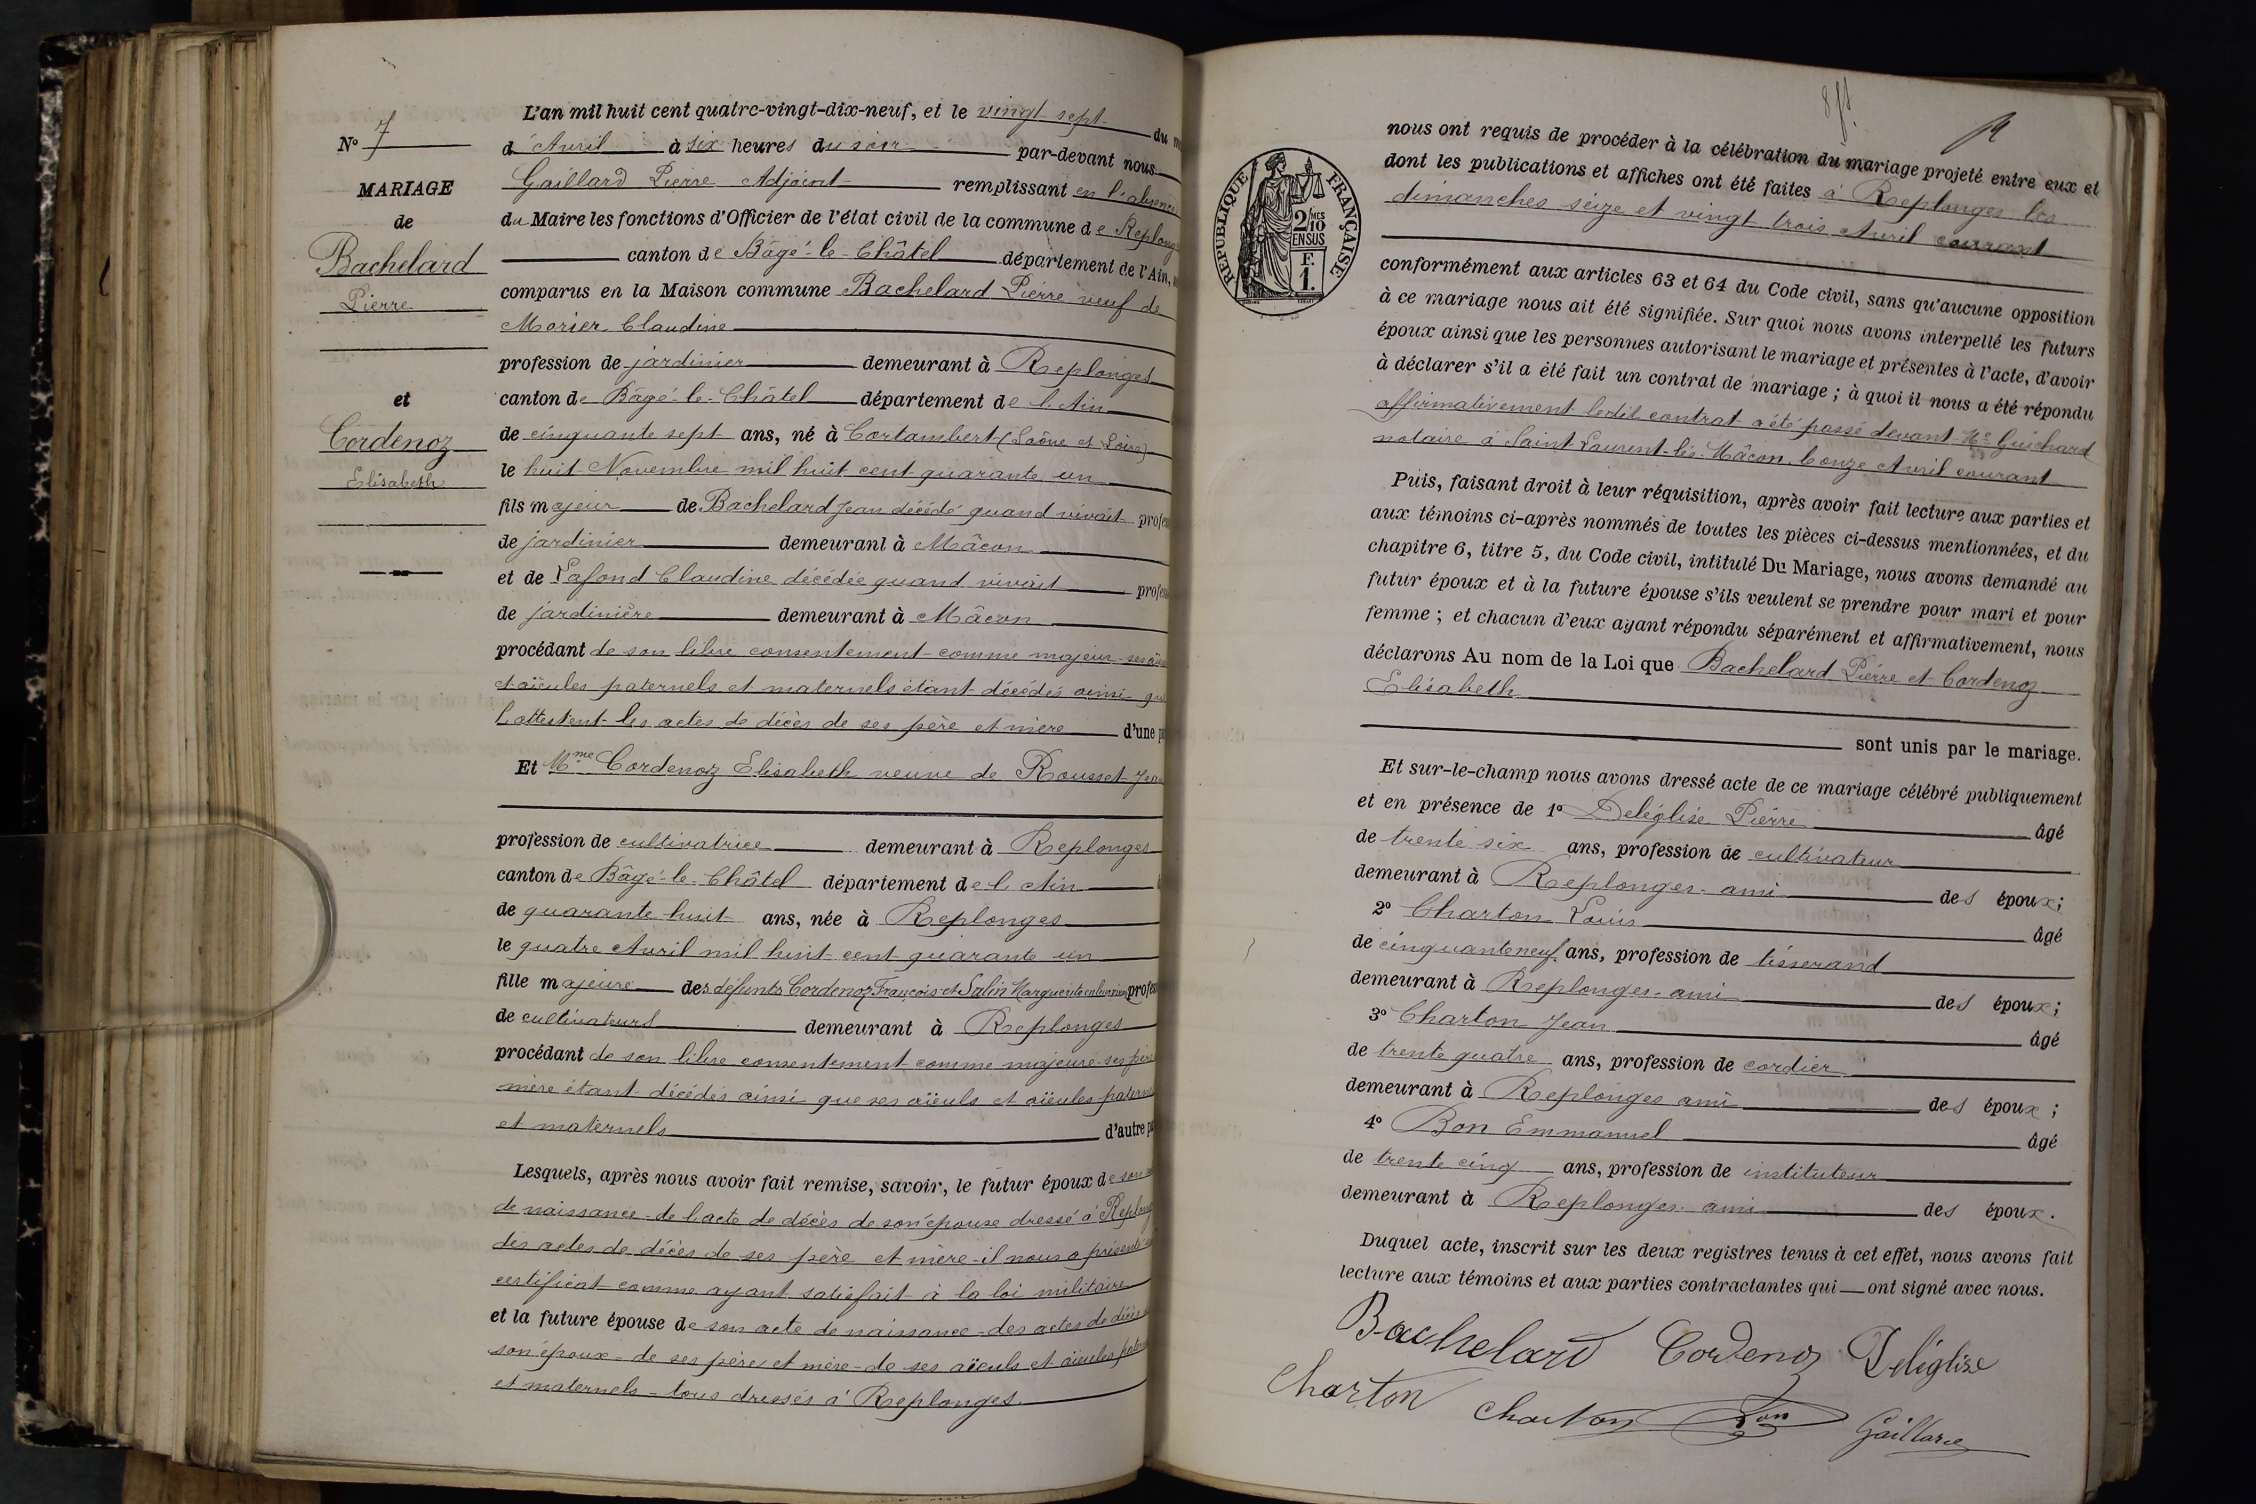 N° 7
MARIAGE
de
Bachelard
Pierre
et
Cordenoz
Elisabeth
L'an mil huit cent quatre-vingt-dix-neuf, et le vingt sept du
d'Avril à six heures du soir par-devant nous
Gaillard Pierre Adjoint remplissant en l'absence
du Maire les fonctions d'Officier de l'état civil de la commune de Replong
canton de Bâgé-le-Châtel département de l'Ain,
comparus en la Maison commune Bachelard Pierre veuf de
Morier Claudine
profession de jardinier demeurant à Replonges
canton de Bâgé-le-Châtel département de l'Ain
de cinquante sept ans, né à Cortambert (Saône et Loire)
le huit Novembre mil huit cent quarante un
fils majeur de Bachelard Jean décédé quand vivait profes
de jardinier demeurant à Mâcon
et de Lafond Claudine décédée quand vivait profes
de jardinière demeurant à Mâcon
procédant de son libre consentement comme majeur ses
et aïeules paternels et maternels étant décédés ainsi que
l'attestent les actes de décès de ses père et mère d'une pa
Et Mme Cordenoz Elisabeth veuve de Rousset Jean
profession de cultivatrice demeurant à Replonges
canton de Bâgé-le-Châtel département de l'Ain
de quarante huit ans, née à Replonges
le quatre Avril mil huit cent quarante un
fille majeure des défunts Cordenoz François et Salin Marguerite profes
de cultivateurs demeurant à Replonges
procédant de son libre consentement comme majeure ses père
mère étant décédés ainsi que ses aïeuls et aïeules patern
et maternels d'autre pa
Lesquels, après nous avoir fait remise, savoir, le futur époux de son
de naissance - de l'acte de décès de son épouse dressé à Replong
des actes de décès de ses père et mère - il nous a présenté
certificat comme ayant satisfait à la loi militaire
et la future épouse de son acte de naissance - des actes de décès
son époux - de ses père et mère - de ses aïeuls et aïeules patern
et maternels - tous dressés à Replonges
RÉPUBLIQUE FRANÇAISE
2/10 MES
EN SUS
F.
1.
nous ont requis de procéder à la célébration du mariage projeté entre eux et
dont les publications et affiches ont été faites à Replonges les
dimanches seize et vingt trois Avril courant
conformément aux articles 63 et 64 du Code civil, sans qu'aucune opposition
à ce mariage nous ait été signifiée. Sur quoi nous avons interpellé les futurs
époux ainsi que les personnes autorisant le mariage et présentes à l'acte, d'avoir
à déclarer s'il a été fait un contrat de mariage ; à quoi il nous a été répondu
affirmativement ledit contrat a été passé devant Me Guichard
notaire à Saint Laurent-lès-Mâcon, le onze Avril courant
Puis, faisant droit à leur réquisition, après avoir fait lecture aux parties et
aux témoins ci-après nommés de toutes les pièces ci-dessus mentionnées, et du
chapitre 6, titre 5, du Code civil, intitulé Du Mariage, nous avons demandé au
futur époux et à la future épouse s'ils veulent se prendre pour mari et pour
femme ; et chacun d'eux ayant répondu séparément et affirmativement, nous
déclarons Au nom de la Loi que Bachelard Pierre et Cordenoz
Elisabeth
sont unis par le mariage.
Et sur-le-champ nous avons dressé acte de ce mariage célébré publiquement
et en présence de 1° Deléglise Pierre âgé
de trente six ans, profession de cultivateur
demeurant à Replonges ami des époux ;
2° Charton Louis âgé
de cinquante neuf ans, profession de tisserand
demeurant à Replonges - ami des époux ;
3° Charton Jean âgé
de trente quatre ans, profession de cordier
demeurant à Replonges ami des époux ;
4° Bon Emmanuel âgé
de trente cinq ans, profession de instituteur
demeurant à Replonges ami des époux.
Duquel acte, inscrit sur les deux registres tenus à cet effet, nous avons fait
lecture aux témoins et aux parties contractantes qui ont signé avec nous.
Bachelard Cordenoz Deléglise
Charton Charton Bon Gaillard